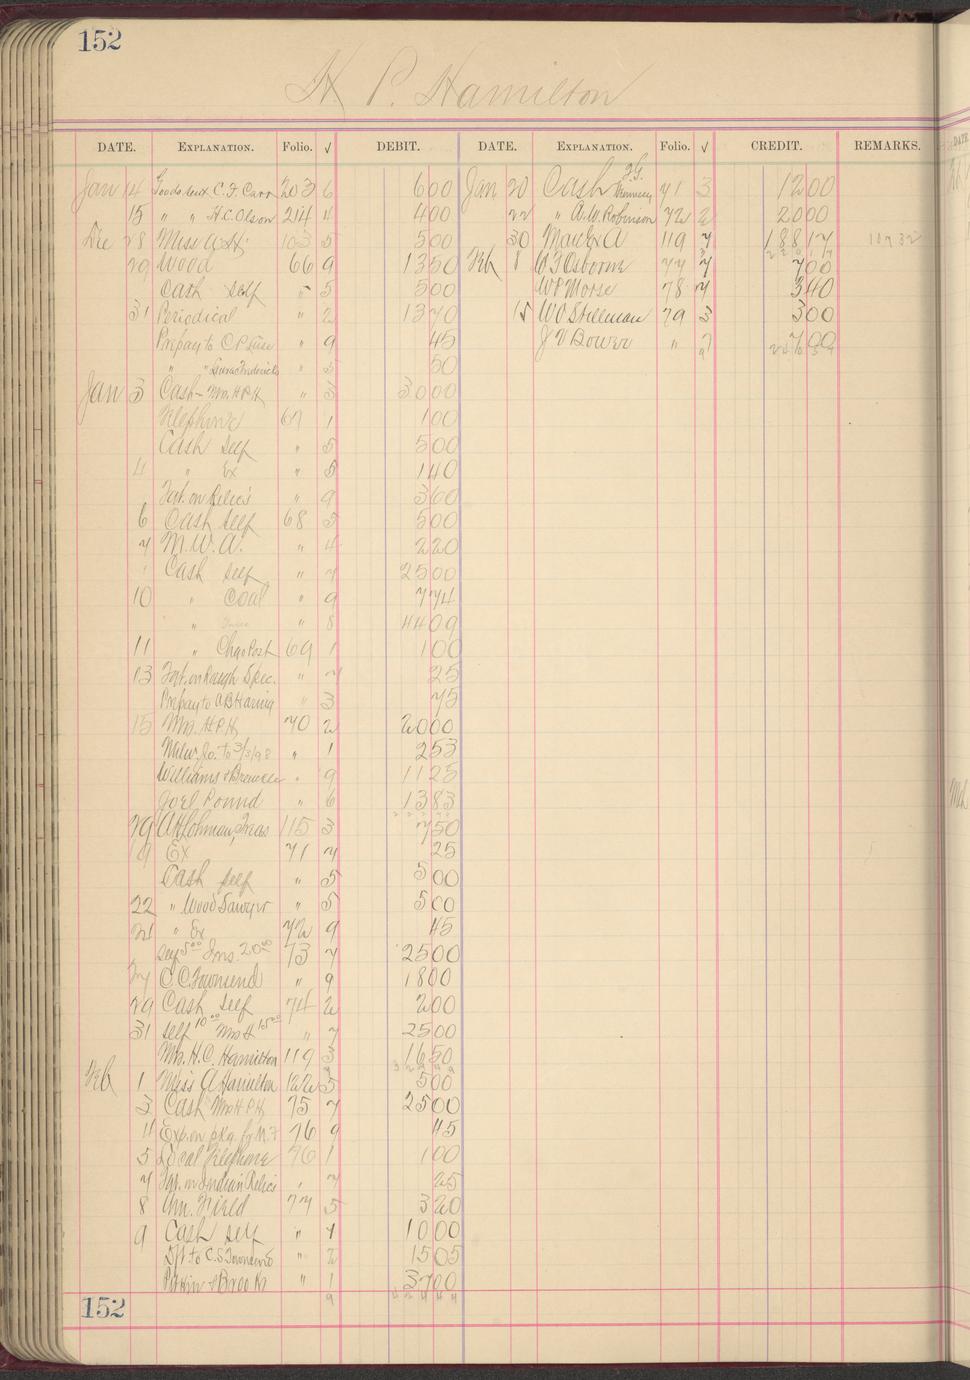 152
H. P. Hamilton
DATE. EXPLANATION. Folio. √ DEBIT. DATE. EXPLANATION. Folio. √ CREDIT. REMARKS.
Jan 14 Goods C. F. Carr 203 6 600 Jan 20 Cash 71 3 1200
15 " " H. C. Olson 214 4 400 22 " A. W. Robinson 72 2 2000
Dec 28 Miss A H. 103 5 500 30 A 119 7 18817
29 Wood 66 9 1350 Feb 8 Osborne 77 7 700
Cash self " 5 500 W P Morse 78 7 340
31 Periodical " 2 1370 15 W O Stillman 79 3 300
Prepay to C P " 9 45 J V Bower " 7 700
" " " 5 50
Jan 3 Cash - Mrs. H P H " 3 3000
Telephone 67 1 100
Cash self " 5 500
4 " Ex " 5 140
Frt. on Relics " 9 360
6 Cash self 68 5 500
7 M. W. A. " 4 220
Cash self " 7 2500
10 " Coal " 9 774
" " 8 4409
11 " Chas Post 69 1 100
13 Frt. on Rough Spec. " 7 25
Prepay to A B " 3 75
15 Mrs. H P H 70 2 2000
Jo. to 3/3/98 " 1 253
Williams & " 9 1125
Joel Pound " 6 1383
29 A H Lohman, Treas 115 3 750
19 Ex 71 7 25
Cash self " 5 500
22 " Wood Sawyer " 5 500
24 " Ex 72 9 45
self 5 00 Ins. 20 00 73 7 2500
27 C. C. Townsend " 9 1800
29 Cash self 74 2 200
31 self 10 00 Mrs H 15 00 " 7 2500
Mrs. H. C. Hamilton 119 3 1650
Feb 1 Miss A Hamilton 122 5 500
3 Cash Mrs H P H 75 7 2500
4 Exp. on pkg. 76 9 45
5 Local Telephone 76 1 100
7 Frt. on Indian Relics " 7 25
8 Am. Field 77 5 320
9 Cash self " 7 1000
Dft to C. S. Townsend " 2 1505
Pitkin & Brooks " 1 3700
152